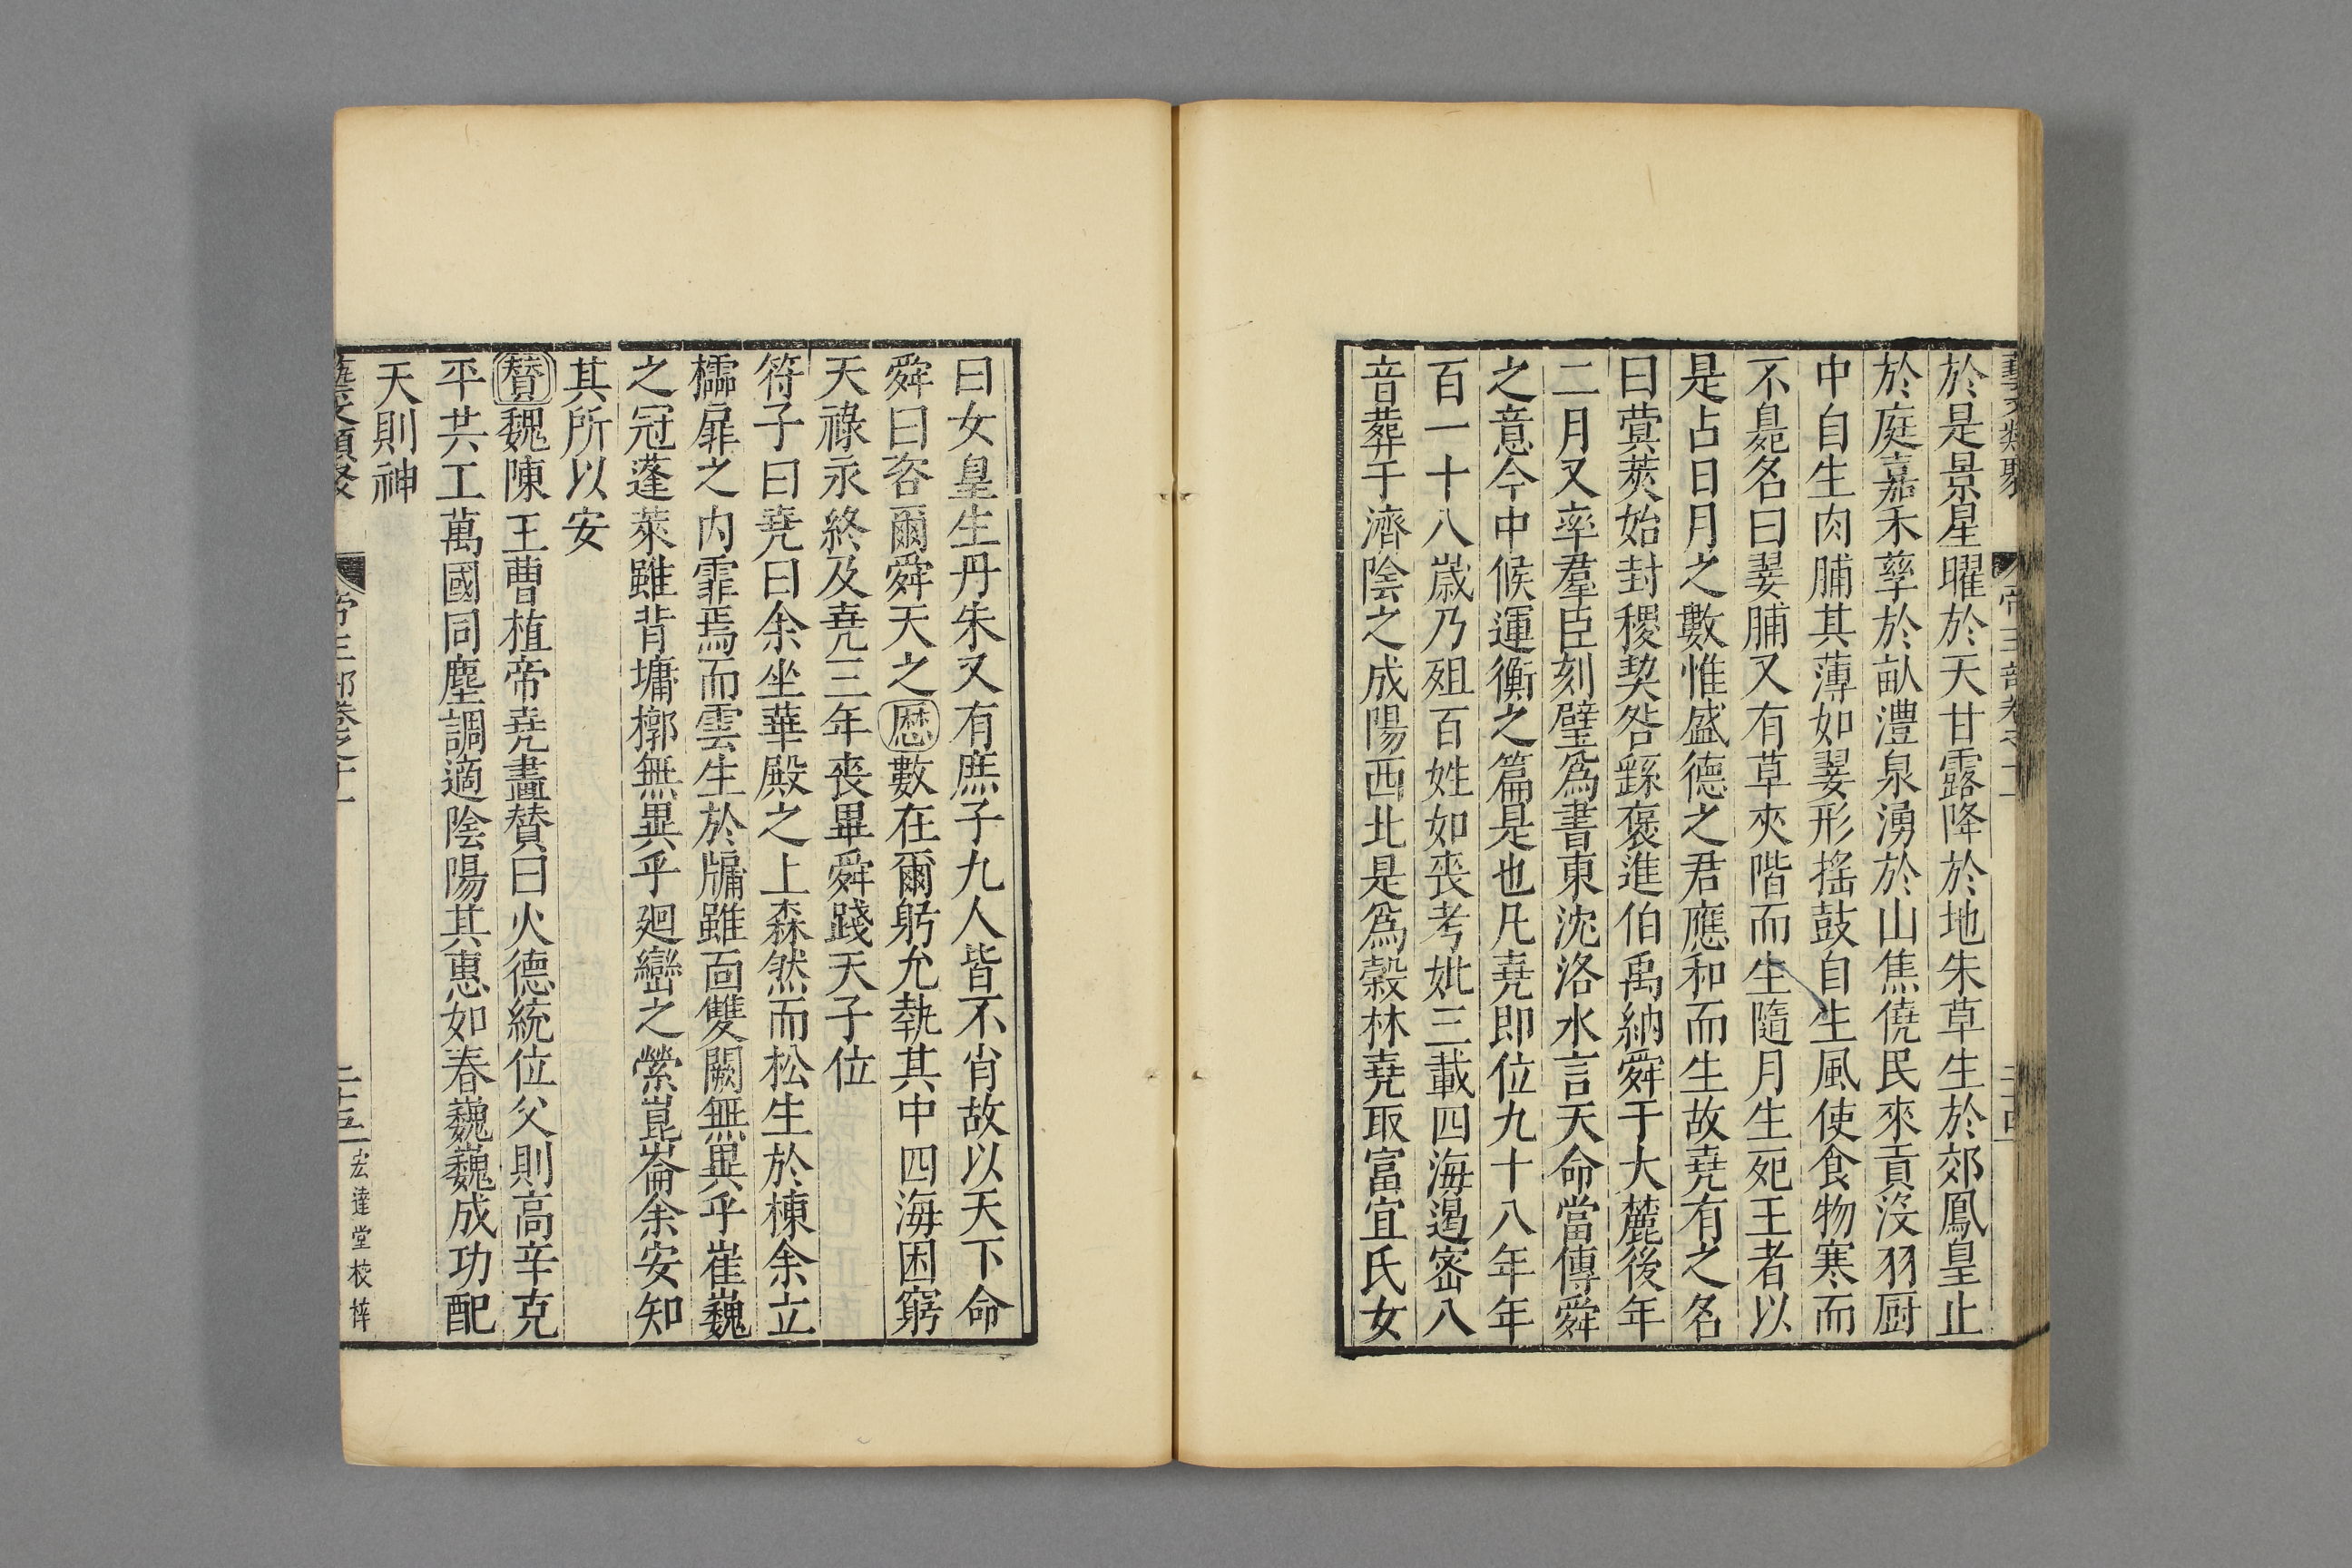 於是景星曜於天甘露降於地朱草生於郊鳳皇止
於庭嘉禾孳於畝澧泉湧於山焦僥民來貢没羽厨
中自生肉脯其薄如翣形搖鼓自生風使食物寒而
不臭名曰翣脯又有草夾階而生隨月生死王者以
是占日月之數惟盛德之君應和而生故堯有之名
曰蓂莢始封稷契咎繇褒進伯禹納舜于大麓後年
二月又率羣臣刻璧爲書東沈洛水言天命當傳舜
之意今中候運衡之篇是也凡堯即位九十八年年
百一十八歲乃殂百姓如喪考妣三載四海遏密八
音葬于濟陰之成陽西北是爲穀林堯取富宜氏女
曰女皇生丹朱又有庶子九人皆不肖故以天下命
舜曰咨爾舜天之厯數在爾躬允執其中四海困窮
天祿永終及堯三年喪畢舜踐天子位
符子曰堯曰余坐華殿之上森然而松生於棟余立
櫺扉之内霏焉而雲生於牖雖面雙闕無異乎崔巍
之冠蓬萊雖背墉槨無異乎廻巒之縈崑崙余安知
其所以安
賛魏陳王曹植帝堯畫賛曰火德統位父則高辛克
平共工萬國同塵調適陰陽其惠如春巍巍成功配
天則神
藝文類聚 帝王部卷之十一 二十五 宏達堂校梓